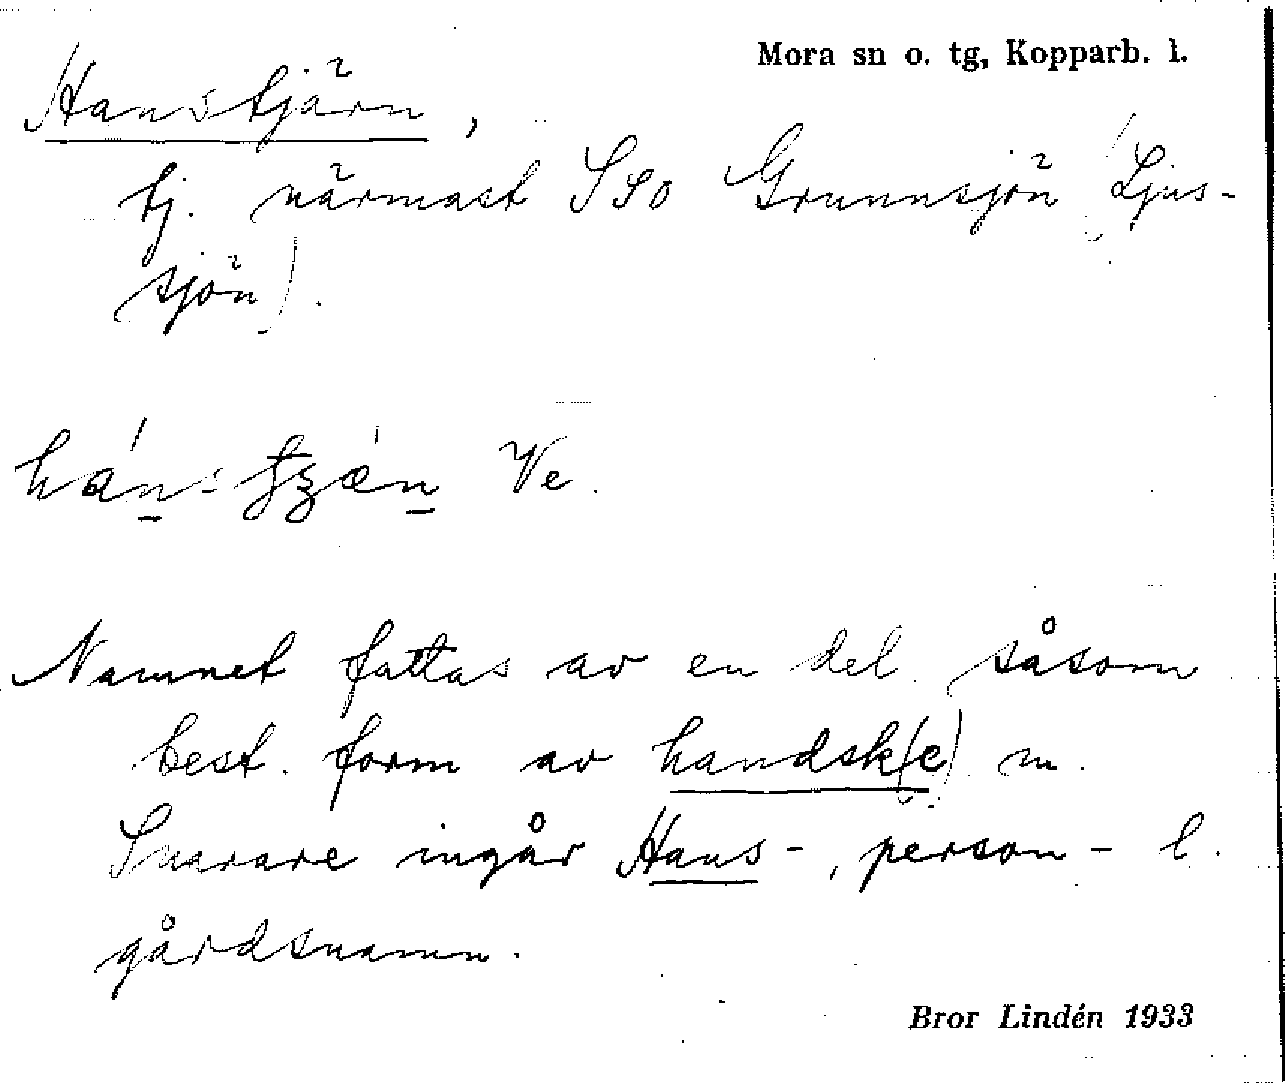 Mora sn o. tg, Kopparb. l.
Hanstjärn,
tj. närmast SSO Grunnsjön (Ljus-
sjön).
Ve.
Namnet fattas av en del såsom
best. form av handsk(e) m.
Snarare ingår Hans-, person- l.
gårdsnamn.
Bror Lindén 1933